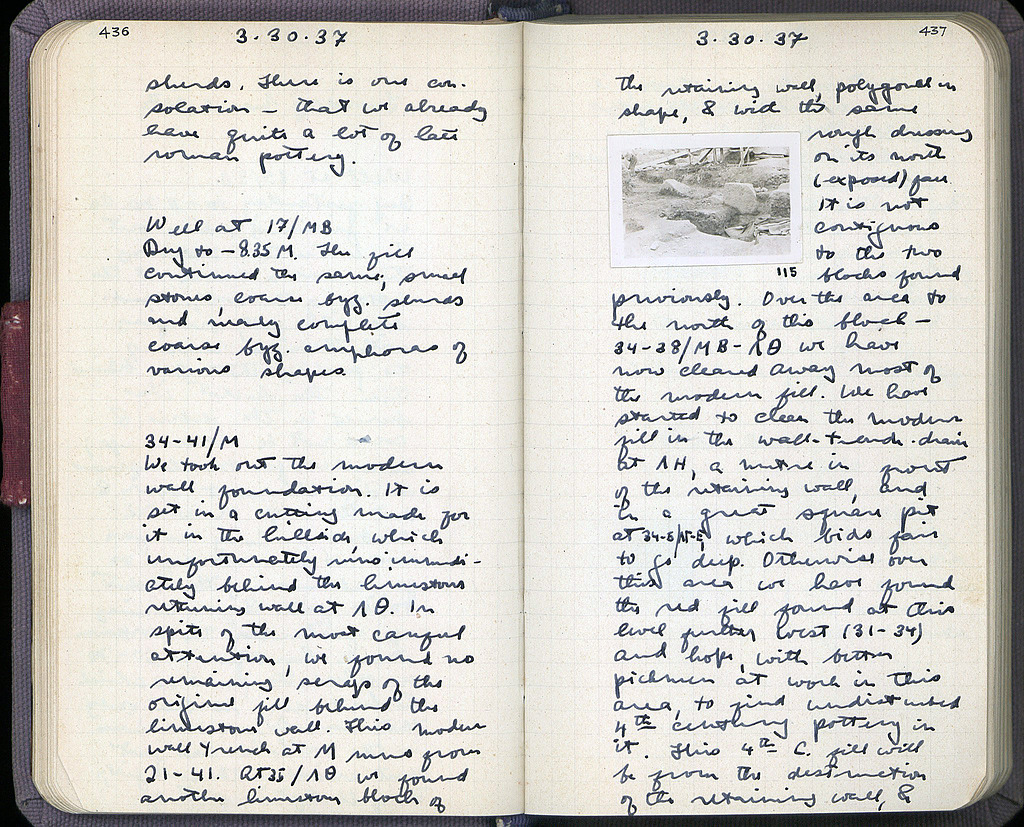 436
3·30·37
sherds. There is one con-
solation – that we already
have quite a lot of late
roman pottery.
Well at 17/MB
Dug to –8.35 M. The fill
continued the same, small
stones, coarse byz. sherds
and nearly complete
coarse byz. amphoras of
various shapes.
34-41/M
We took out the modern
wall foundation. It is
set in a cutting made for
it in the hillside, which
unfortunately runs immedi-
ately behind the limestone
retaining wall at ΛΘ. In
spite of the most careful
attention, we found no
remaining scraps of the
original fill behind the
limestone wall. This modern
wall trench at M runs from
21-41. At 35/ΛΘ we found
another limestone block of
437
3·30·37
the retaining wall, polygonal in
shape, & with the same
rough dressing
on its north
(exposed) face
It is not
contiguous
to the two
blocks found
115
previously. Over the area to
the north of this block –
34-38/MB-ΛΘ we have
now cleared away most of
the modern fill. We have
started to clean the modern
fill in the wall-trench-drain
at ΛH, a metre in front
of the retaining wall, and
in a great square pit
at which bids fair
to go deep. Otherwise over
this area we have found
the red fill found at this
level further west (31-34)
and hope, with better
pickmen at work in this
area, to find undisturbed
4th century pottery in
it. This 4th C. fill will
be from the destruction
of the retaining wall, &